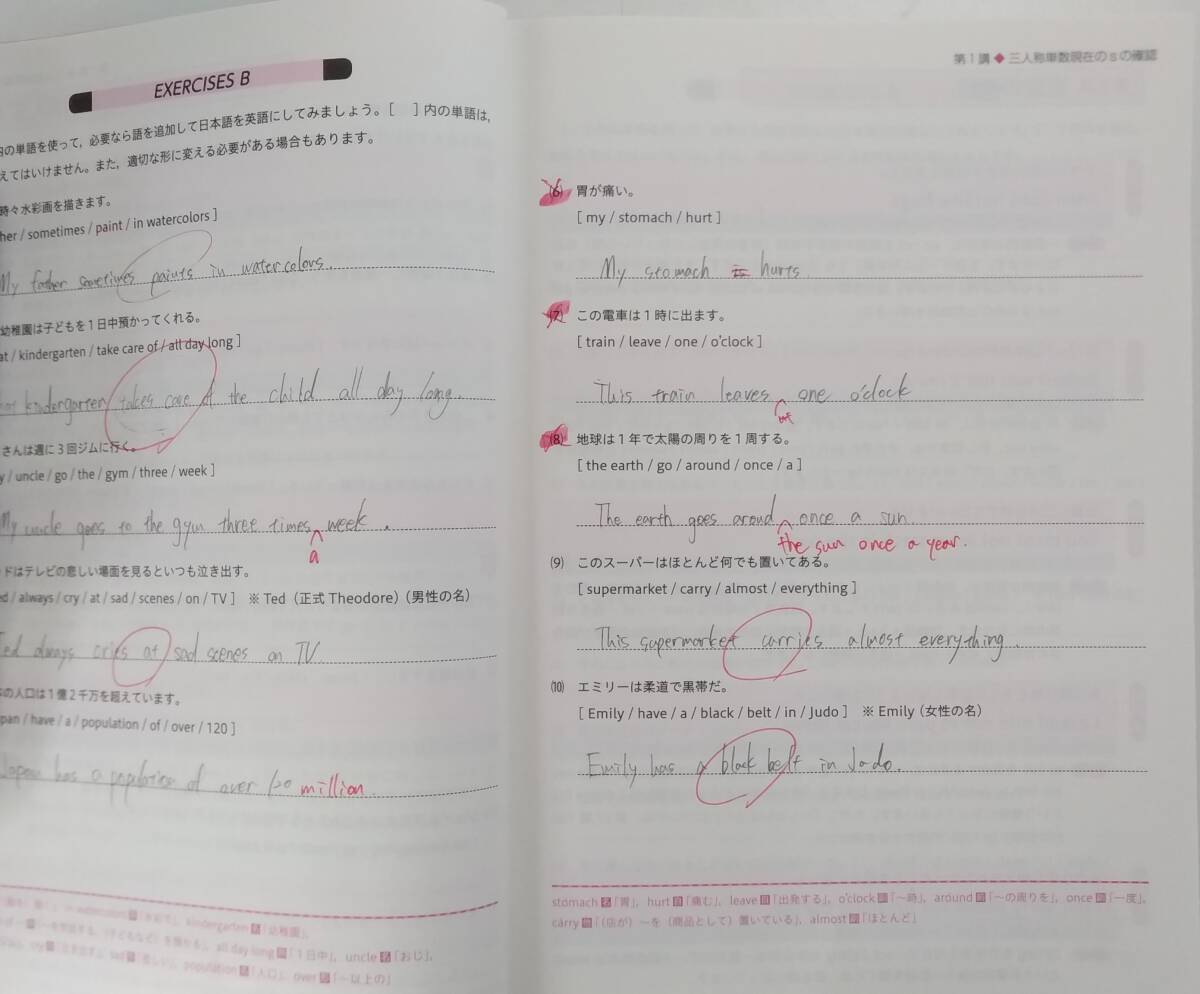 EXERCISES B
内の単語を使って，必要なら語を追加して日本語を英語にしてみましょう。[　]内の単語は，
えてはいけません。また，適切な形に変える必要がある場合もあります。
時々水彩画を描きます。
her / sometimes / paint / in watercolors ]
My father sometimes paints in watercolors.
幼稚園は子どもを1日中預かってくれる。
at / kindergarten / take care of / all day long ]
kindergarten takes care of the child all day long.
さんは週に3回ジムに行く。
y / uncle / go / the / gym / three / week ]
My uncle goes to the gym three times week.
a
ドはテレビの悲しい場面を見るといつも泣き出す。
ed / always / cry / at / sad / scenes / on / TV ]　※ Ted（正式 Theodore）（男性の名）
Ted always cries at sad scenes on TV
の人口は1億2千万を超えています。
pan / have / a / population / of / over / 120 ]
Japan has a population of over 120 million.
kindergarten 名「幼稚園」，
all day long 副「1日中」，uncle 名「おじ」，
population 名「人口」，over 前「～以上の」
第1講◆三人称単数現在のsの確認
(6) 胃が痛い。
[ my / stomach / hurt ]
My stomach is hurts.
(7) この電車は1時に出ます。
[ train / leave / one / o'clock ]
This train leaves one o'clock
at
(8) 地球は1年で太陽の周りを1周する。
[ the earth / go / around / once / a ]
The earth goes aroud once a sun.
the sun once a year.
(9) このスーパーはほとんど何でも置いてある。
[ supermarket / carry / almost / everything ]
This supermarket carries almost everything.
(10) エミリーは柔道で黒帯だ。
[ Emily / have / a / black / belt / in / Judo ]　※ Emily（女性の名）
Emily has a black belt in Judo.
stomach 名「胃」，hurt 動「痛む」，leave 動「出発する」，o'clock 副「～時」，around 前「～の周りを」，once 副「一度」，
carry 動「（店が）～を（商品として）置いている」，almost 副「ほとんど」